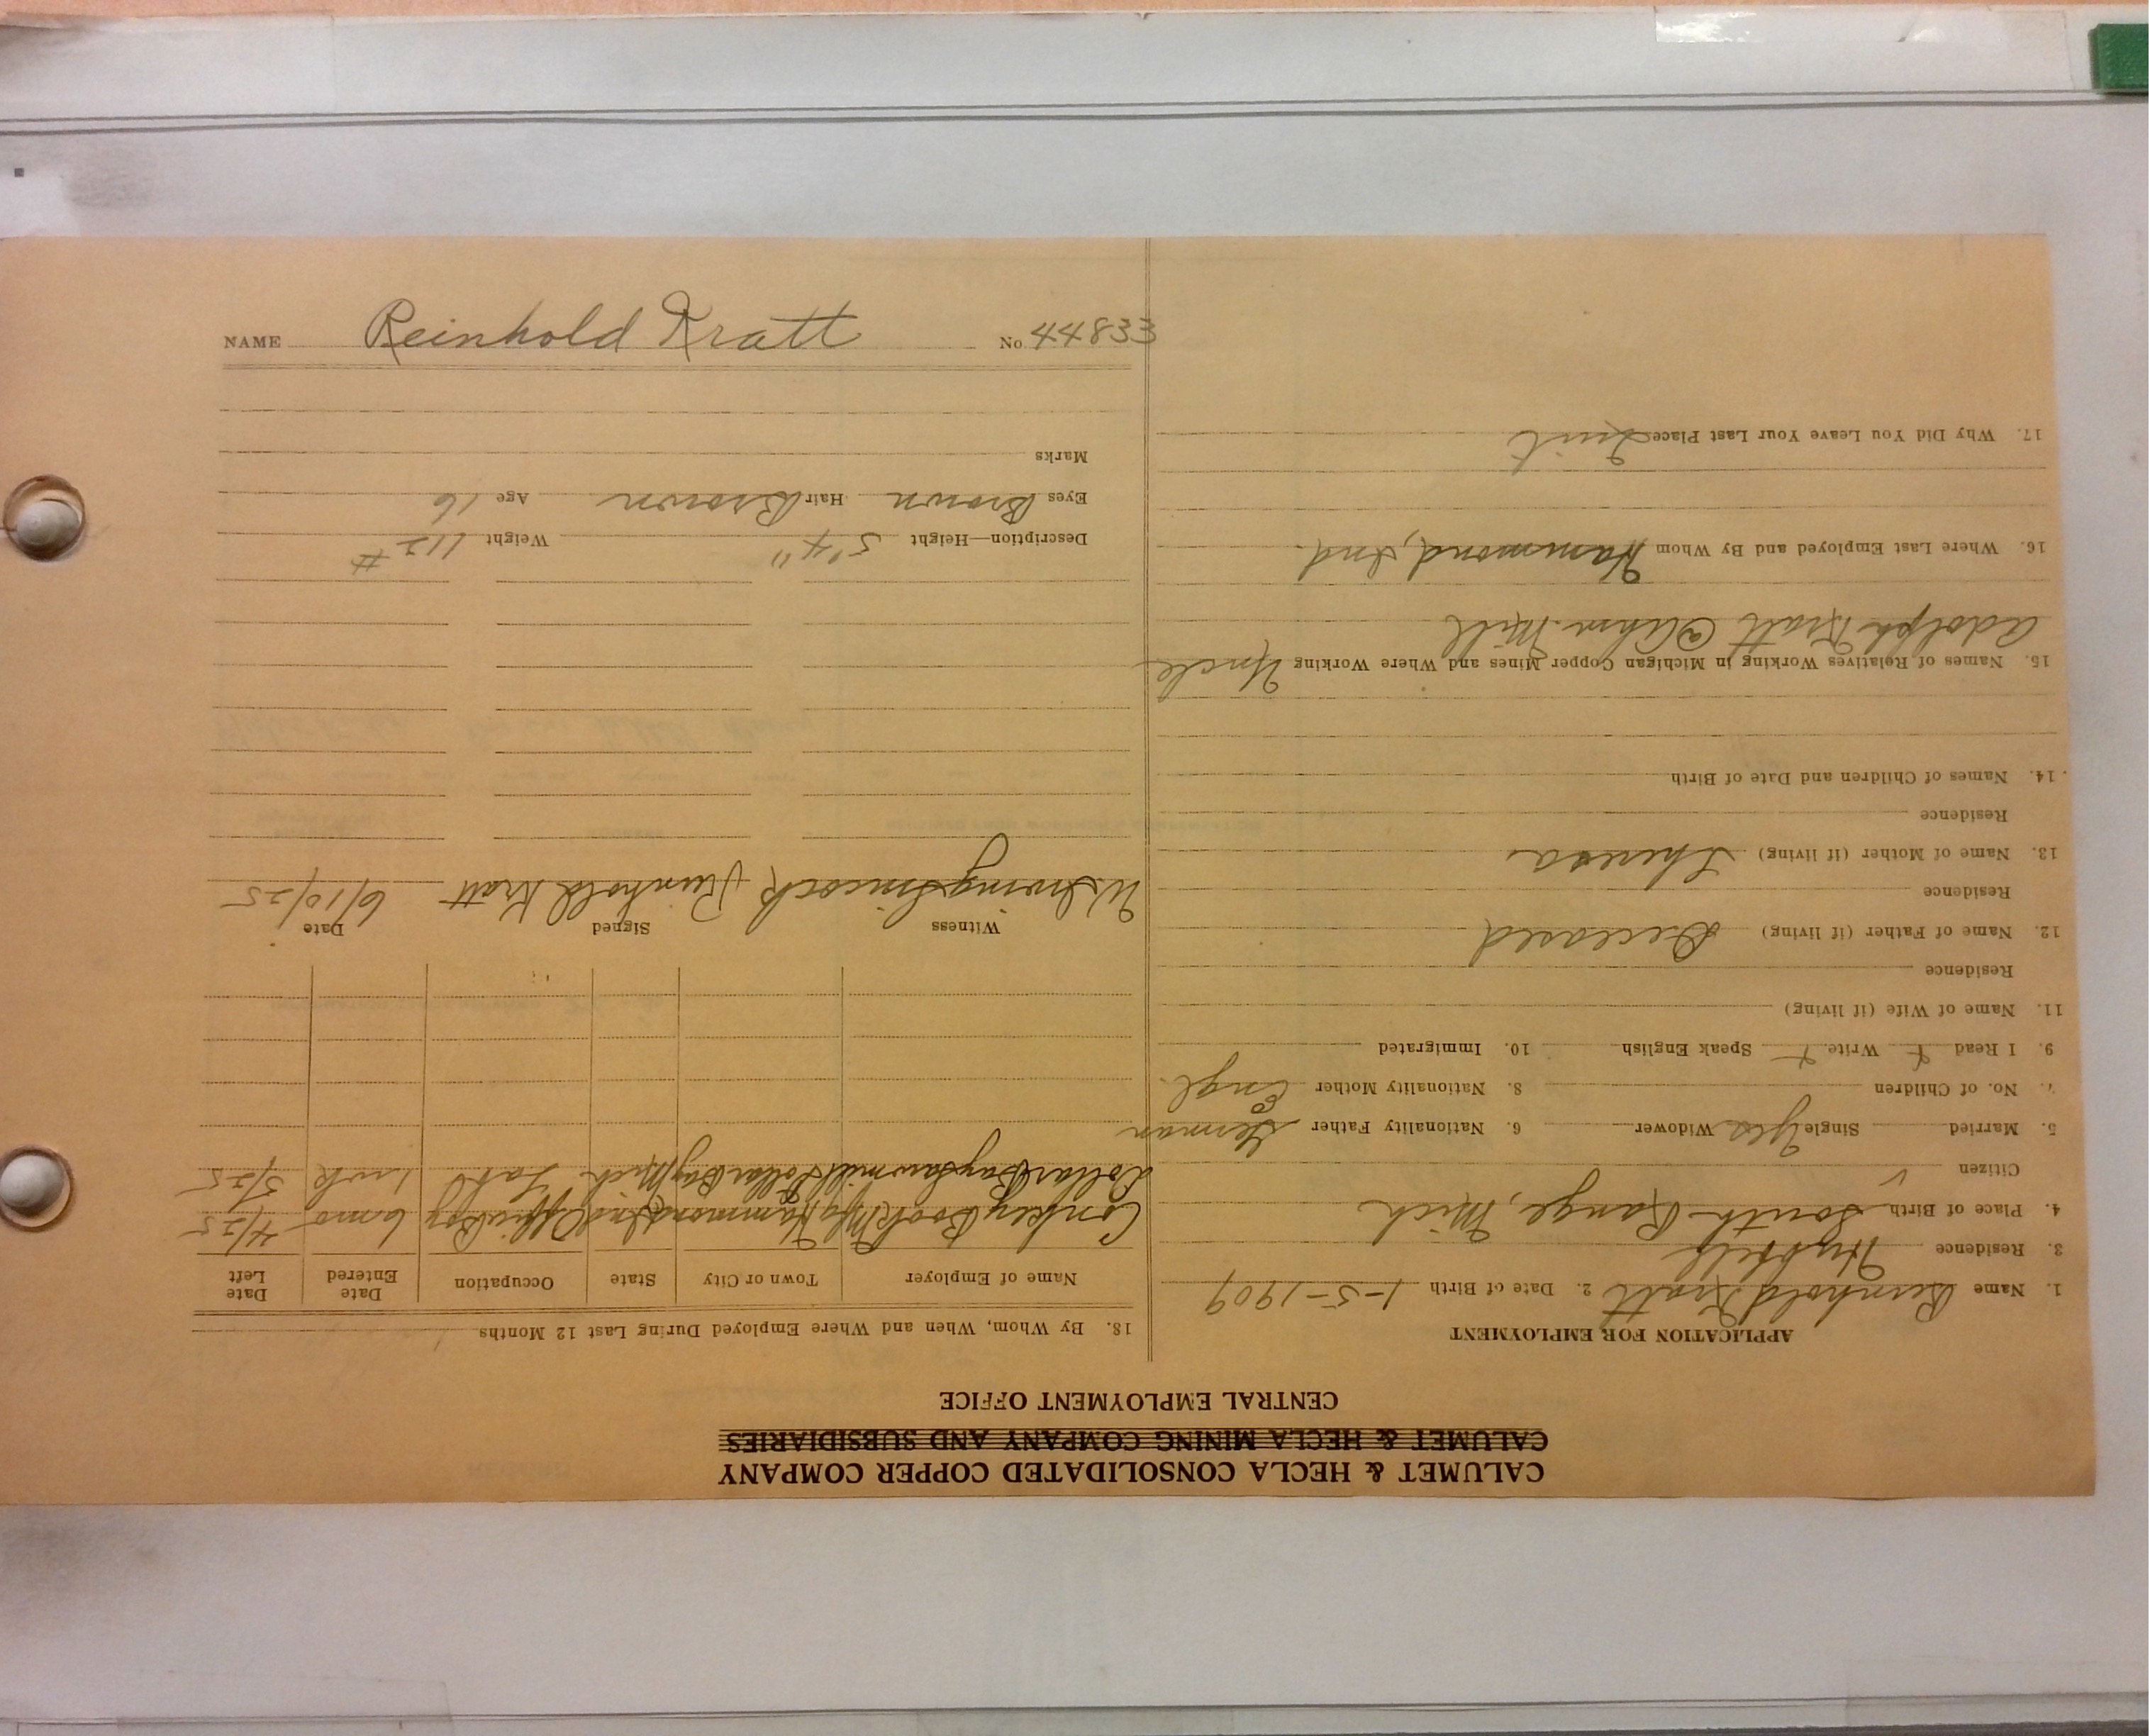 CALUMET & HECLA CONSOLIDATED COPPER COMPANY
CALUMET & HECLA MINING COMPANY AND SUBSIDIARIES
CENTRAL EMPLOYMENT OFFICE
APPLICATION FOR EMPLOYMENT
1. Name Reinhold Kratt 2. Date of Birth 1-5-1909
3. Residence Hubbell
4. Place of Birth South Range, Mich
Citizen
5. Married Single Yes Widower 6. Nationality Father German
7. No. of Children 8. Nationality Mother Engl.
9. I Read Write Speak English 10. Immigrated
11. Name of Wife (if living)
Residence
12. Name of Father (if living) Deceased
Residence
13. Name of Mother (if living) Theresa
Residence
14. Names of Children and Date of Birth
15. Names of Relatives Working in Michigan Copper Mines and Where Working Uncle
Adolph Kratt @ Ahm. Mill
16. Where Last Employed and By Whom Hammond, Ind
17. Why Did You Leave Your Last Place Quit
18. By Whom, When and Where Employed During Last 12 Months
Name of Employer Town or City State Occupation Date Entered Date Left
Conkey Book Mfg Hammond Ind Office Boy 6 mo 4/25
Dollar Bay Sawmill Dollar Bay Mich Lab 1 wk 5/25
Witness Signed Date
W. Irving Reinhold Kratt 6/10/25
Description—Height 5'4" Weight 112#
Eyes Brown Hair Brown Age 16
Marks
NAME Reinhold Kratt No 44833